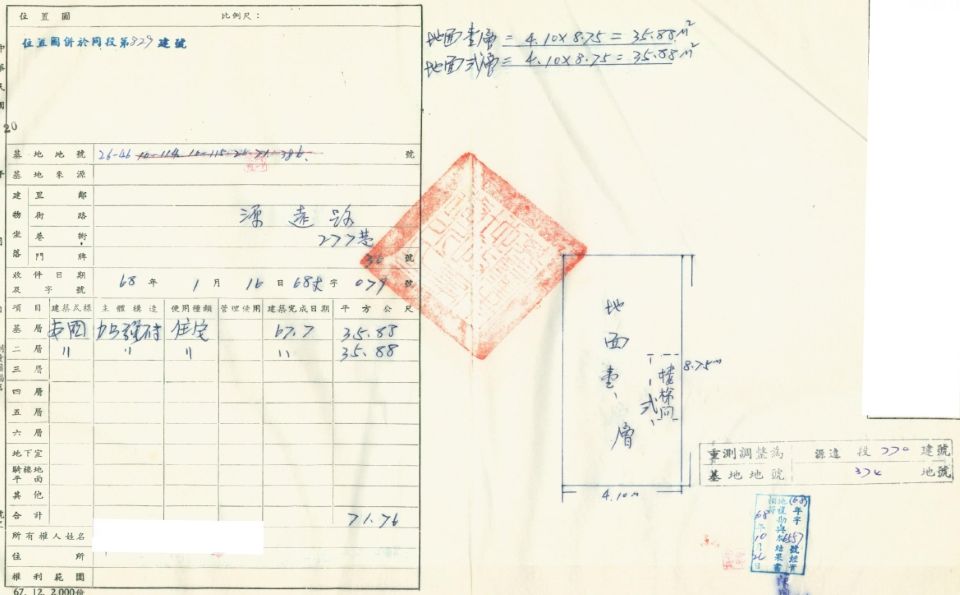 位置圖
比例尺：
位置圖併於同段第829建號
地面壹層 = 4.10×8.75 = 35.88㎡
地面弍層 = 4.10×8.75 = 35.88㎡
基地地號 26-46 號
基地來源
建 里 鄰
物 街 路 源遠路
坐 巷 衖 277巷
落 門 牌 36 號
收件日期 68年1月16日
及字號 字079號
項目 建築式樣 主體構造 使用種類 管理使用 建築完成日期 平方公尺
基層 本國 加強磚 住宅 67.7 35.88
二層 〃 〃 〃 〃 35.88
三層
四層
五層
六層
地下室
騎樓地平面
其他
合計 71.76
所有權人姓名
住所
權利範圍
67. 12. 2,000份
地面壹、弍、層
樓梯間
8.75m
4.10m
重測調整為 源遠段770建號
基地地號 374 地號